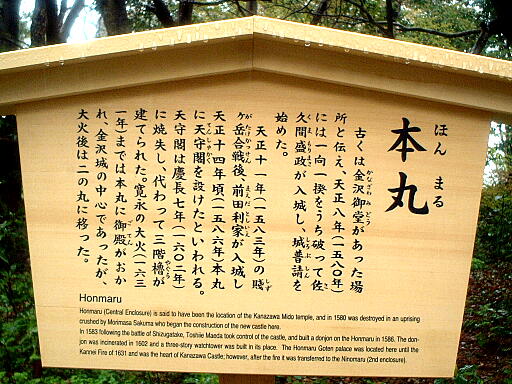 本丸
ほん まる
古くは金沢御堂があった場
かなざわみどう
所と伝え、天正八年(一五八〇)
には一向一揆をうち破って佐
さ
久間盛政が入城し、城普請を
くまもりまさ
始めた。
天正十一年(一五八三年)の賤
しず
ケ岳合戦後、前田利家が入城し
がたけかっせん
まえだとしいえ
天正十四年頃(一五八六年)本丸
に天守閣を設けたといわれる。
天守閣は慶長七年(一六〇二年)
に焼失し、代わって三階櫓が
やぐら
建てられた。寛永の大火(一六三
一年)までは本丸に御殿がおか
ごてん
れ、金沢城の中心であったが、
大火後は二の丸に移った。
Honmaru
Honmaru (Central Enclosure) is said to have been the location of the Kanazawa Mido temple, and in 1580 was destroyed in an uprising
crushed by Morimasa Sakuma who began the construction of the new castle here.
In 1583 following the battle of Shizugatake, Toshiie Maeda took control of the castle, and built a donjon on the Honmaru in 1586. The don-
jon was incinerated in 1602 and a three-story watchtower was built in its place. The Honmaru Goten palace was located here until the
Kannei Fire of 1631 and was the heart of Kanazawa Castle; however, after the fire it was transferred to the Ninomaru (2nd enclosure).